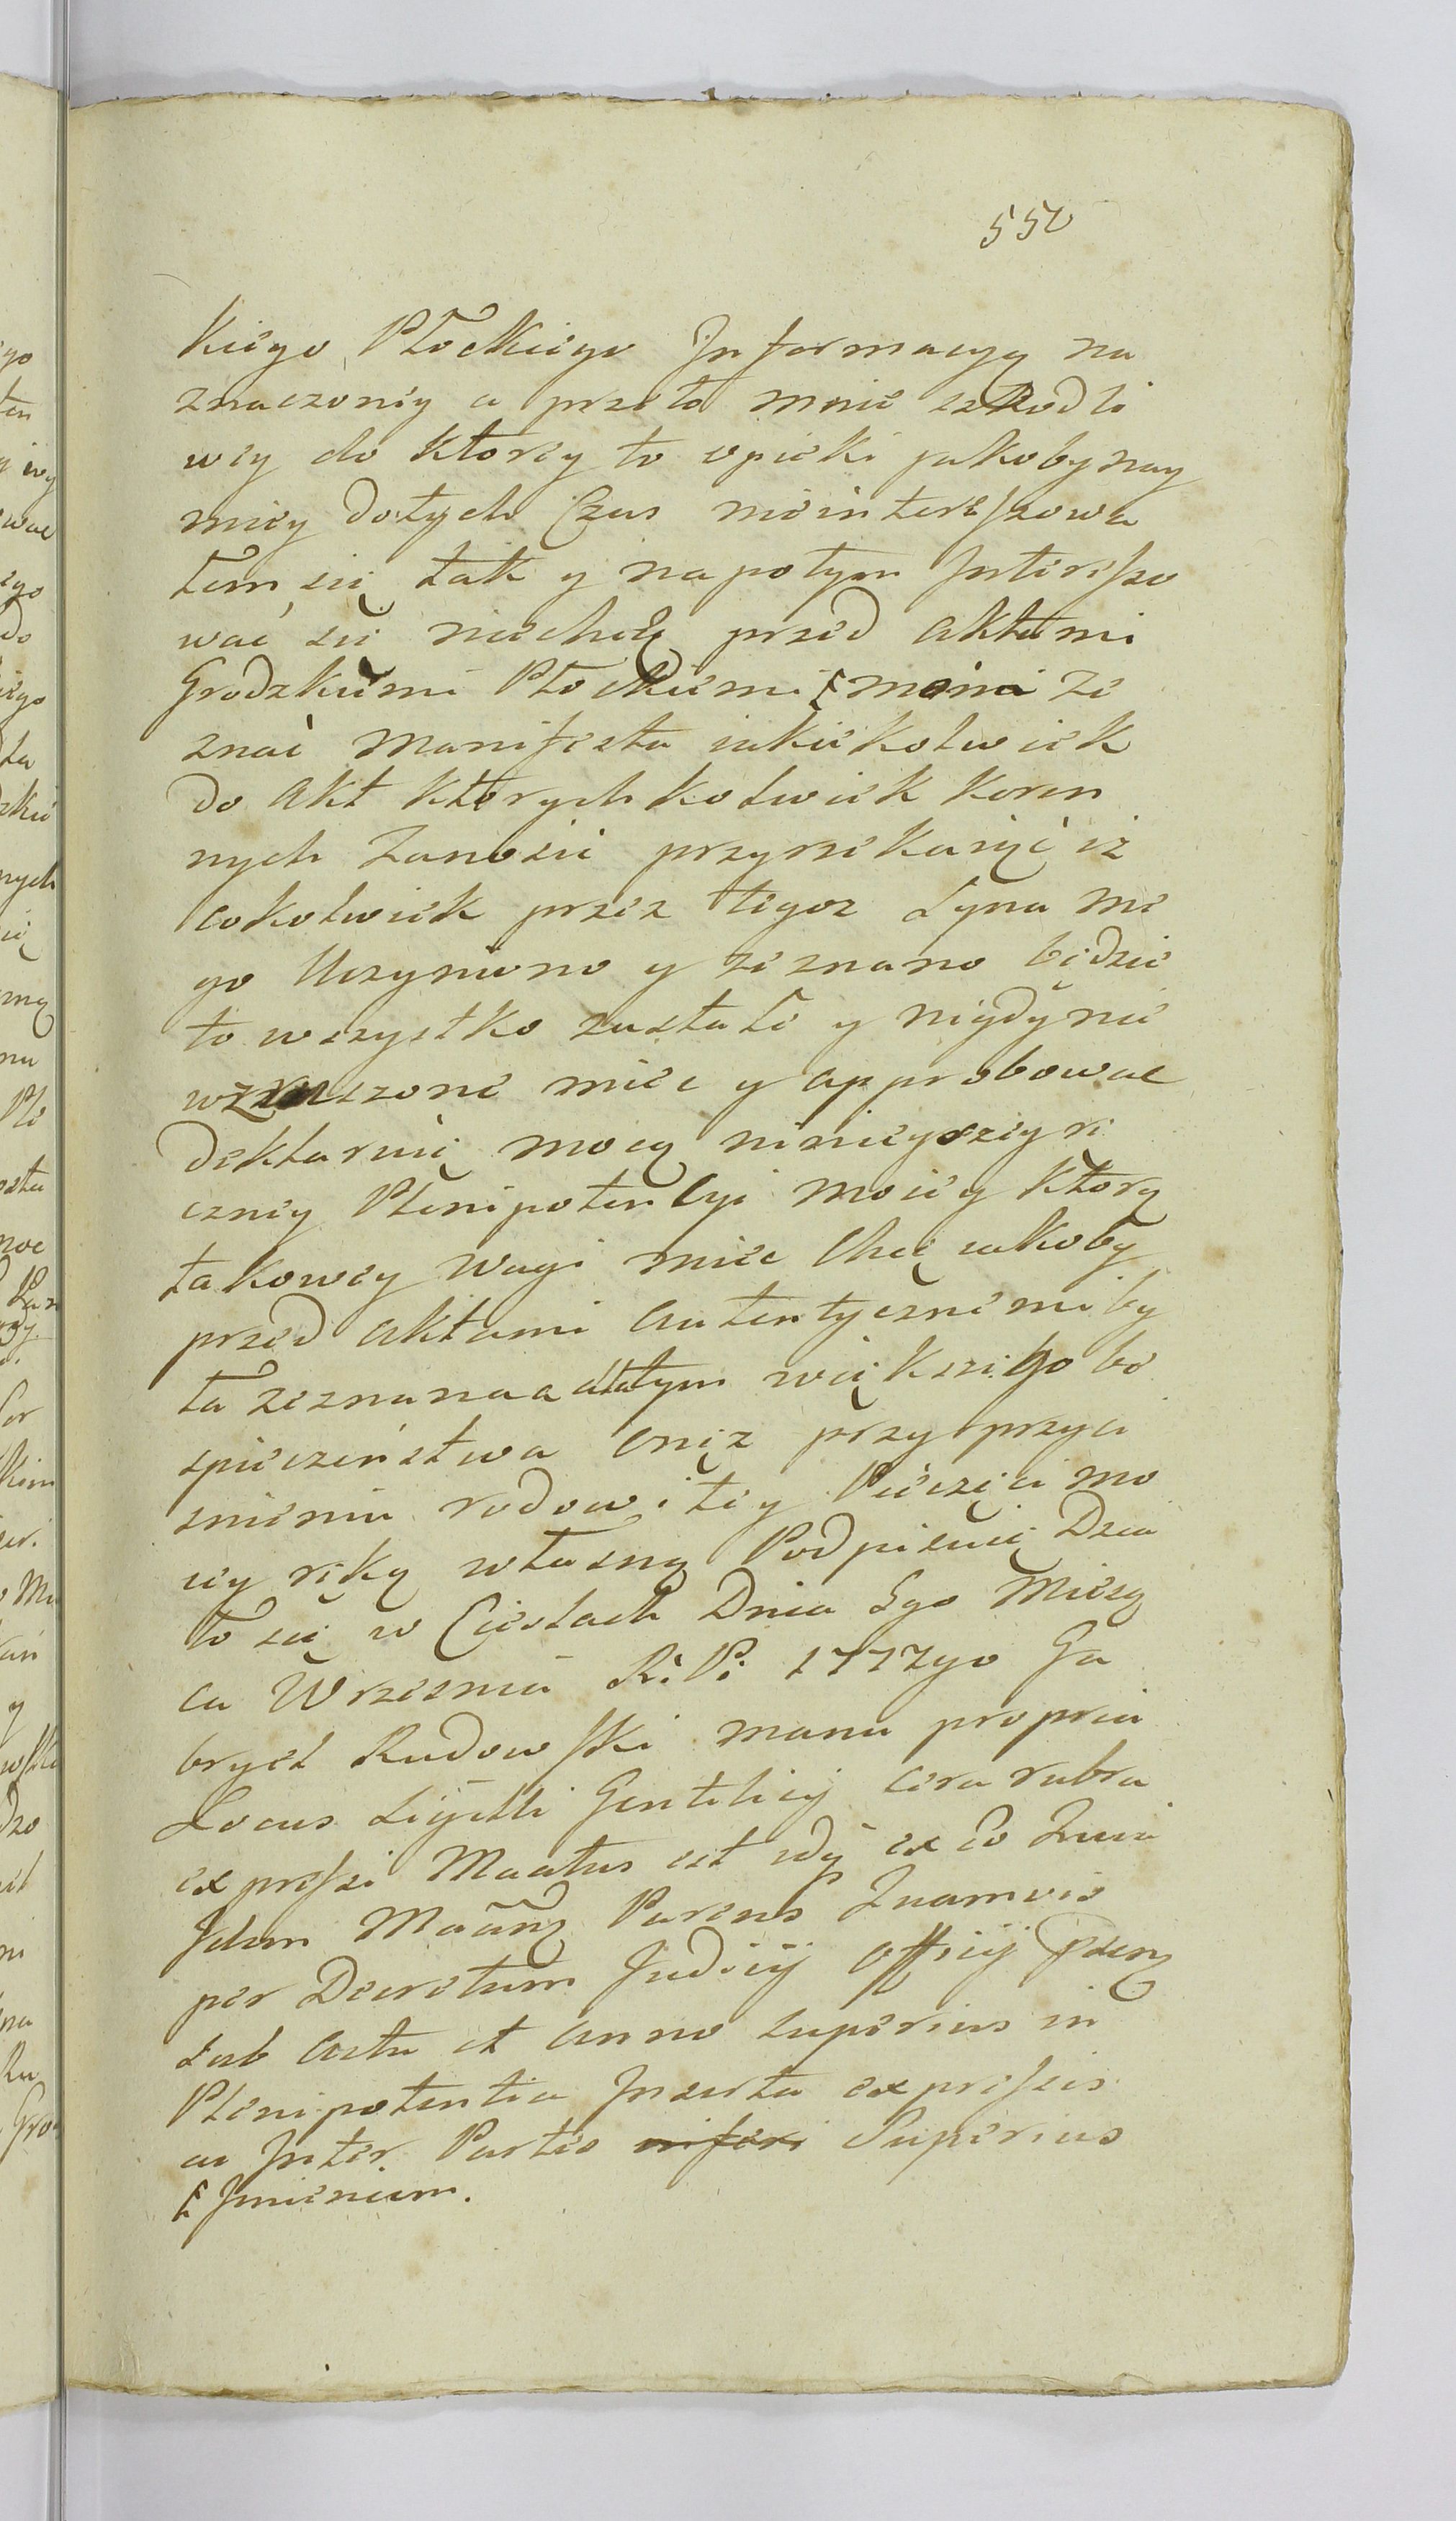 550
kiego Płockiego Informacyą na
znaczoney a przeto mnie szkodli
wey do ktorey to opieki jakoby nay
mniey dotych Czas nieinteressowa
łem się tak y napotym Interesso
wać się niechcę przed aktami
Grodzkiemi Płockiemi ze
znać Manifesta iakiekolwiek
do akt ktorychkolwiek koron
nych zanosić przyrzekaiąc iż
cokolwiek przez tegoz Syna me
go Uczyniono y zeznano będzie
to wszystko zastałe y nigdy nie
wzruszone miec y approbowac
deklaruię mocą ninieyszey ri
czney Plenipotencyi moiey ktorą
takowey wagi miec Chcę iakoby
przed aktami autentycznemi by
ła zeznana a dlatym większego be
spieczeństwa onęz przy przyci
snieniu rodowitey Pieczęci mo
iey ręką własną Podpisuię Dzia
ło się w Ciesłach Dnia 5go Miesią
ca Wrzesnia R: P: 1777go Ga
bryel Rudowski manu propria
Locus Sigilli Gentilicij cera rubra
expressi
per Decretum Judicij Officij
sub actu et anno superius in
Plenipotentia Inserta expressis
ac Inter Partes inferi Superius